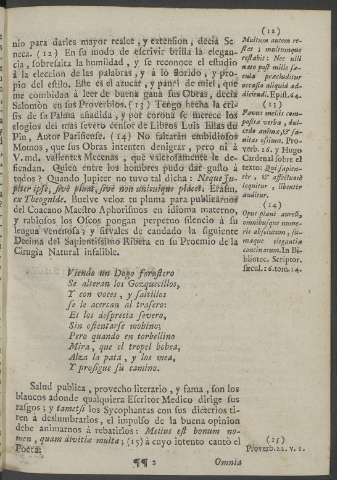 nio para darles mayor realce, y extension, decia Seneca. (12) En su modo de escrivir brilla la elegancia, sobresalta la humildad, y se reconoce el estudio
à la eleccion de las palabras, y à lo florido, y proprio del estilo. Este es el azucar, y panal de miel, que
me combidan à leer de buena gana sus Obras, decia
Salomòn en sus Proverbios. (13) Tengo hecha la crisis de su Palma añadida, y por corona se merece los
elogios del mas severo censor de Libros Luis Elias du
Pin, Autor Parisiense. (14) No faltaràn embidiosos
Momos, que sus Obras intenten denigrar, pero ni à
V.md. valientes Mecenas, que valerosamente le defiendan. Quien entre los hombres pudo dàr gusto à
todos? Quando Jupiter no tuvo tal dicha: Neque Jupiter ipse, sivè pluat, sivè non unicuique placet. Erasm.
ex Theognide. Buelve veloz tu pluma para publicarnos
del Coacano Maestro Aphorismos en idioma materno,
y rabiosos los Oscos pongan perpetuo silencio à su
lengua venenosa; y sirvales de candado la siguiente
Decima del Sapientissimo Ribera en su Proemio de la
Cirugia Natural infalible.
Viendo un Dogo farastero
Se alteran los Gozquecillos,
Y con voces, y saltillos
se le acercan al trasero:
El los desprecia severo,
Sin ostentarse mohino;
Pero quando en torbellino
Mira, que el tropel bobea,
Alza la pata, y los mea,
Y prosigue su camino.
Salud publica, provecho literario, y fama, son los
blancos adonde qualquiera Escritor Medico dirige sus
rasgos; y tametsi los Sycophantas con sus dicterios tiren à deslumbrarlos, el impulso de la buena opinion
debe animarnos à rebatirlos: Melius est bonum nomen, quam divitiæ multæ; (15) à cuyo intento cantò el
Poeta:
¶¶ 2 Omnia
(12)
Multum autem restat; multumque
restabit: Nec ulli
nato post mille sæcula præcludetur
occasio aliquid adiiciendi. Epist. 64.
(13)
Favus mellis composita verba, dulcedo animæ, & sanitas ossium. Proverb. 16. y Hugo
Cardenal sobre el
texto: Qui sapienter, & affectuosè
loquitur, libentèr
auditur.
(14)
Opus planè aureũ,
omnibusque numeris absolutum, summaque elegantia
concinatum. In Bibliothec. Scriptor.
sæcul. 16. tom. 14.
(15)
Proverb. 22. V. 1.